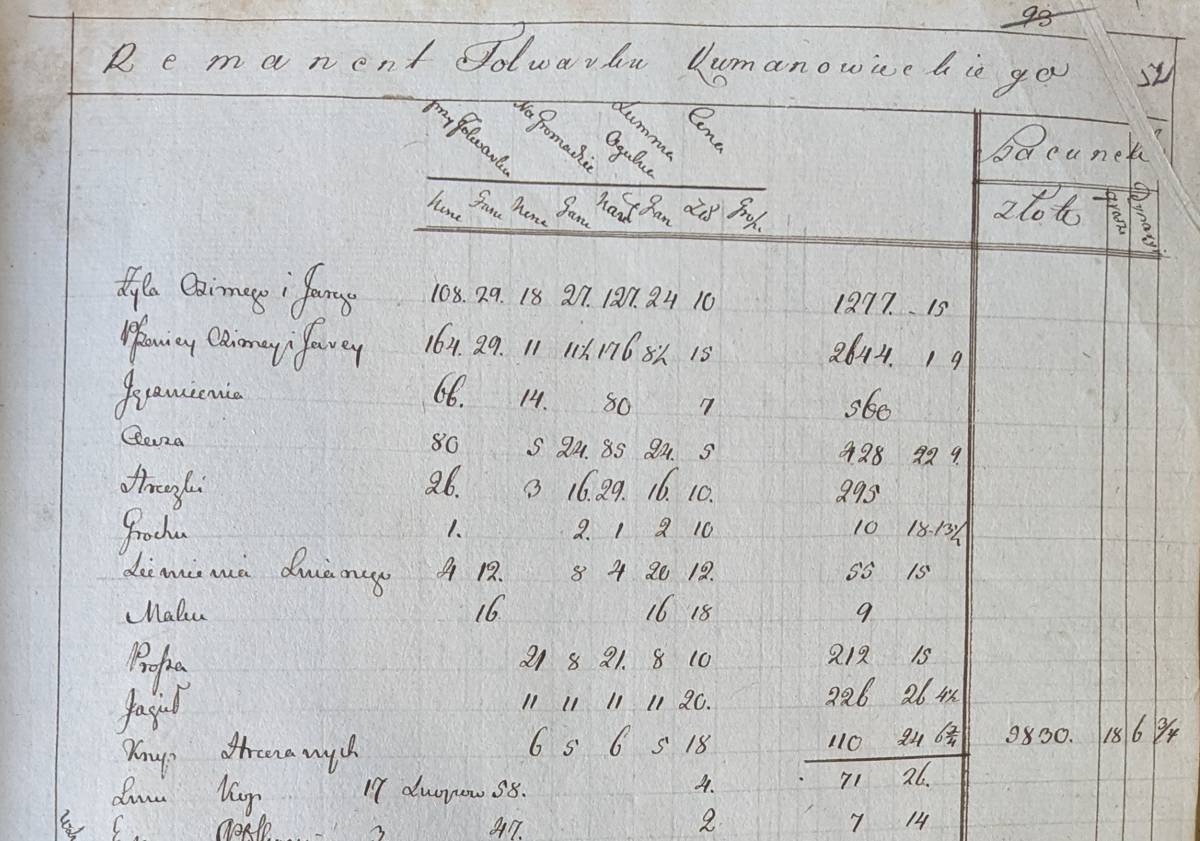 98
Remanent Folwarku Kumanowieckiego 52
przy Folwarku Na Gromadzie Summa Ogulna Cena Szacunek
Korce Garce Korce Garce Korce Gar Złł Grosz. Złote grosze
Żyta Ozimego i Jarego 108. 29. 18 27. 127. 24 10 1277. 15
Pszenicy Ozimey i Jarey 164. 29. 11 11½ 176 8½ 15 2644. 1 9
Jęczmienia 66. 14. 80 7 560
Owsa 80 5 24. 85 24. 5 428 22 9.
Hreczki 26. 3 16. 29. 16. 10. 295
Grochu 1. 2. 1 2 10 10 18 13½
Siemienia Lnianego 4 12. 8 4 20 12. 55 15
Maku 16 16 18 9
Prossa 21 8 21. 8 10 212 15
Jagieł 11 11 11 11 20. 226 26 4½
Krup Hreczanych 6 5 6 5 18 110 24 6¾ 9830. 18 6 ¾
Lnu Kop 17 Snopow 58. 4. 71 26.
3 47. 2 7 14